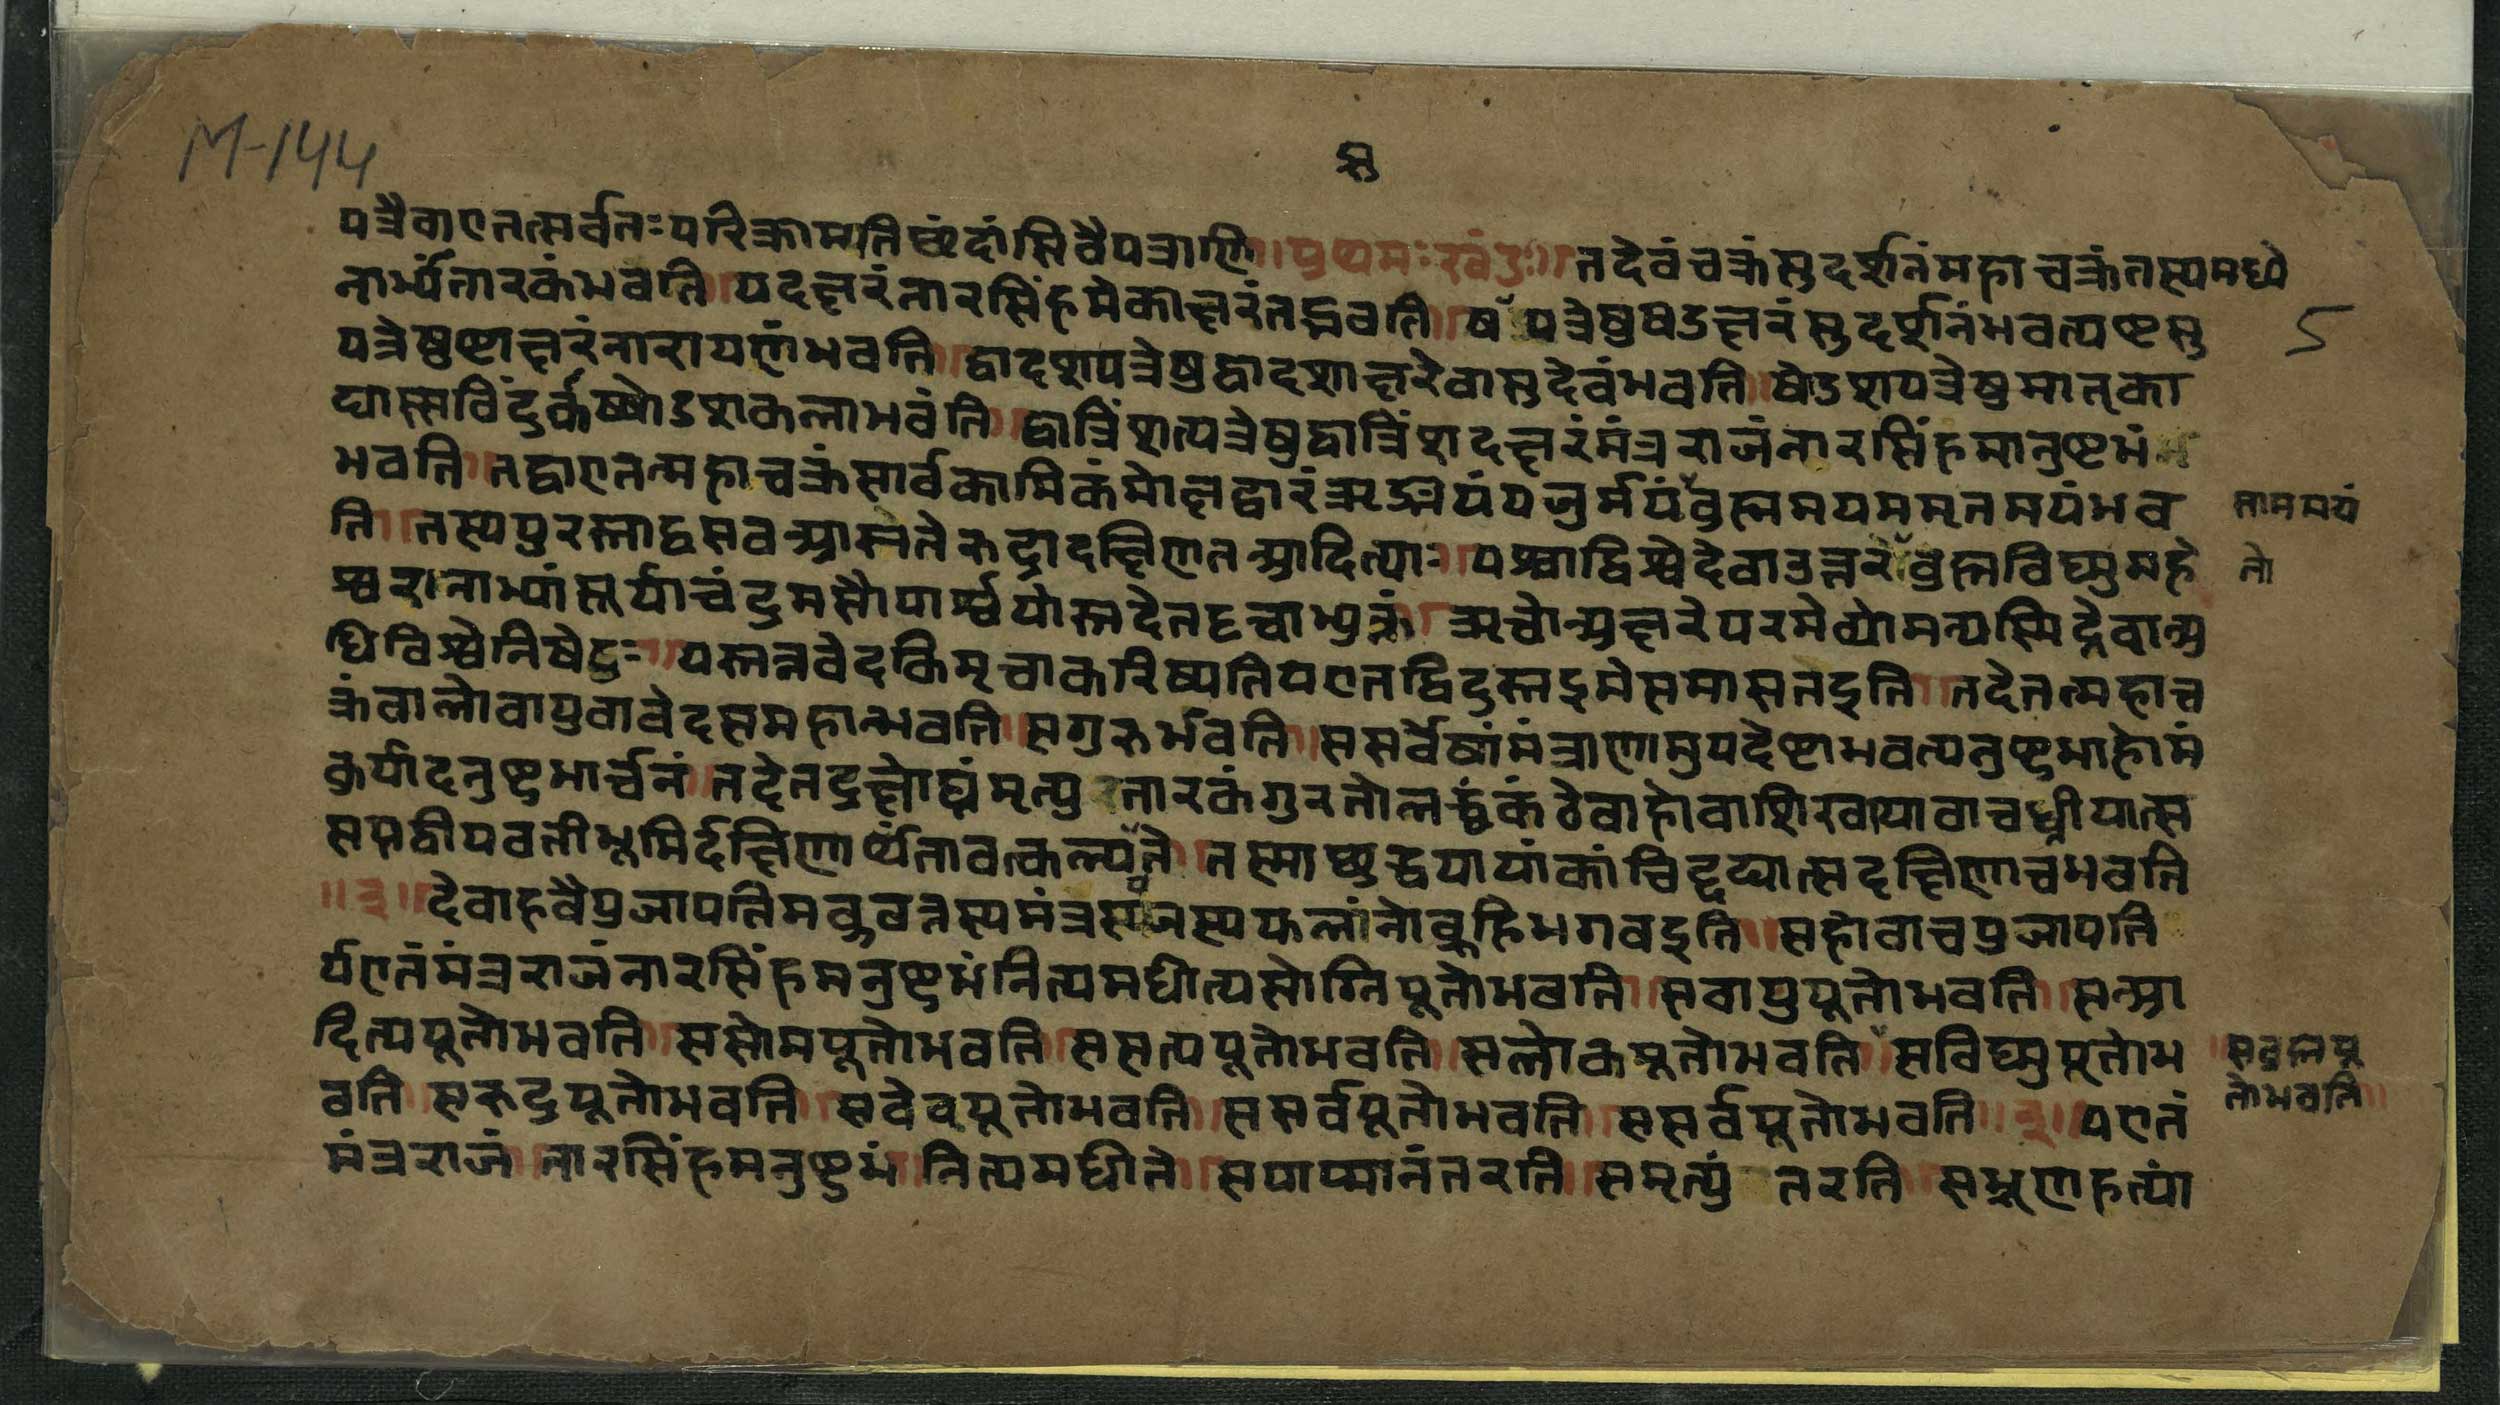 M-144
पत्रैवाएतत्सर्वतःपरिक्रामतिछंदांसिवैपत्राणि॥प्रथमःखंडः॥तदेवंचक्रंसुदर्शनंमहाचक्रंतस्यमध्ये
नाभ्यांतारकंभवति॥यदक्षरंनारसिंहमेकाक्षरंतद्भवति॥षट्पत्रेषुषडक्षरंसुदर्शनंभवत्यष्टसु
5
पत्रेषुष्टाक्षरंनारायणंभवति॥द्वादशपत्रेषुद्वादशाक्षरंवासुदेवंभवति॥षोडशपत्रेषुमातृका
द्यास्सबिंदुकाषोडशकलाभवंति॥द्वात्रिंशत्पत्रेषुद्वात्रिंशदक्षरंमंत्रराजंनारसिंहमानुष्टभं
भवति॥तद्वाएतन्महाचक्रंसार्वकामिकंमोक्षद्वारंऋङ्मयंयजुर्मयंब्रह्ममयममृतमयंभव
साममयं
ति॥तस्यपुरस्ताद्वसवआसतेरुद्रादक्षिणतआदित्याः॥पश्चाद्विश्वेदेवाउत्तरेब्रह्मविष्णुमहे
तो
श्वरानाभ्यांसूर्याचंद्रमसौपार्श्वयोस्तदेतदृचाभ्युक्तं॥ऋचोअक्षरेपरमेव्योमन्यस्मिद्देवाअ
धिविश्वेनिषेदुः॥यस्तन्नवेदकिमृचाकरिष्यतियएतद्विदुस्तइमेसमासतइति॥तदेतत्महाच
क्रंबालोवायुवावेदसमहान्भवति॥सगुरुर्भवति॥ससर्वेषांमंत्राणामुपदेष्टाभवत्यनुष्टुभाहोमं
कुर्यादनुष्टुभार्चनं॥तदेतद्रक्षोघ्नंमृत्युतारकंगुरतोलब्धंकंठेबाहोवाशिखायावाबध्नीयात्स
सप्तद्वीपवतीभूमिर्दक्षिणार्थंतावत्कल्पते॥तस्माछ्रद्धयायांकांचिद्दद्यात्सदक्षिणाचभवति
॥२॥देवाहवैप्रजापतिमब्रुवन्नस्यमंत्रराजस्यफलांनोब्रूहिभगवइति॥सहोवाचप्रजापति
र्यएतंमंत्रराजंनारसिंहमनुष्टुभंनित्यमधीत्यसोग्निपूतोभवति॥सवायुपूतोभवति॥सआ
दित्यपूतोभवति॥ससोमपूतोभवति॥ससत्यपूतोभवति॥सलोकपूतोभवति॥सविष्णुपूतोभ
॥सब्रह्मपू
वति॥सरुद्रपूतोभवति॥सवेदपूतोभवति॥ससर्वपूतोभवति॥ससर्वपूतोभवति॥३॥यएतं
तोभवति॥
मंत्रराजं॥नारसिंहमनुष्टुभं॥नित्यमधीते॥सपाप्मानंतरति॥समृत्युं तरति॥सभ्रूणहत्यां